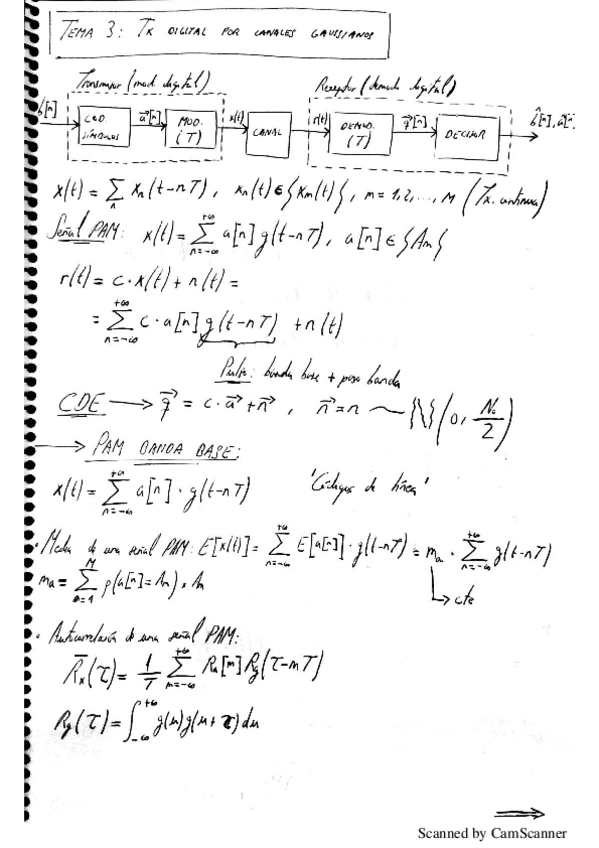 TEMA 3: TX DIGITAL POR CANALES GAUSSIANOS
Transmisor (mod. digital)
Receptor (demod. digital)
b[n] COD. SÍMBOLOS a⃗[n] MOD. (T) x(t) CANAL r(t) DEMOD. (T) q⃗[n] DECISOR b̂[n], â[n]
x(t) = ∑n xn(t-nT), xn(t) ∈ {xm(t)}, m = 1, 2, ..., M (Tx. continua)
Señal PAM: x(t) = ∑n=-∞+∞ a[n] g(t-nT), a[n] ∈ {Am}
r(t) = c·x(t) + n(t) =
= ∑n=-∞+∞ c·a[n] g(t-nT) + n(t)
Pulso: banda base + paso banda
CDE → q⃗ = c·a⃗ + n⃗, n⃗ = n ~ N(0, No/2)
→ PAM BANDA BASE:
x(t) = ∑n=-∞+∞ a[n]·g(t-nT) 'Códigos de línea'
· Media de una señal PAM: E[x(t)] = ∑n=-∞+∞ E[a[n]]·g(t-nT) = ma·∑n=-∞+∞ g(t-nT)
ma = ∑M p(a[n]=Am)·Am
↳ cte
· Autocorrelación de una señal PAM:
R̄x(τ) = 1/T ∑m=-∞+∞ Ra[m] Rg(τ-mT)
Rg(τ) = ∫-∞+∞ g(u)g(u+τ)du
Scanned by CamScanner